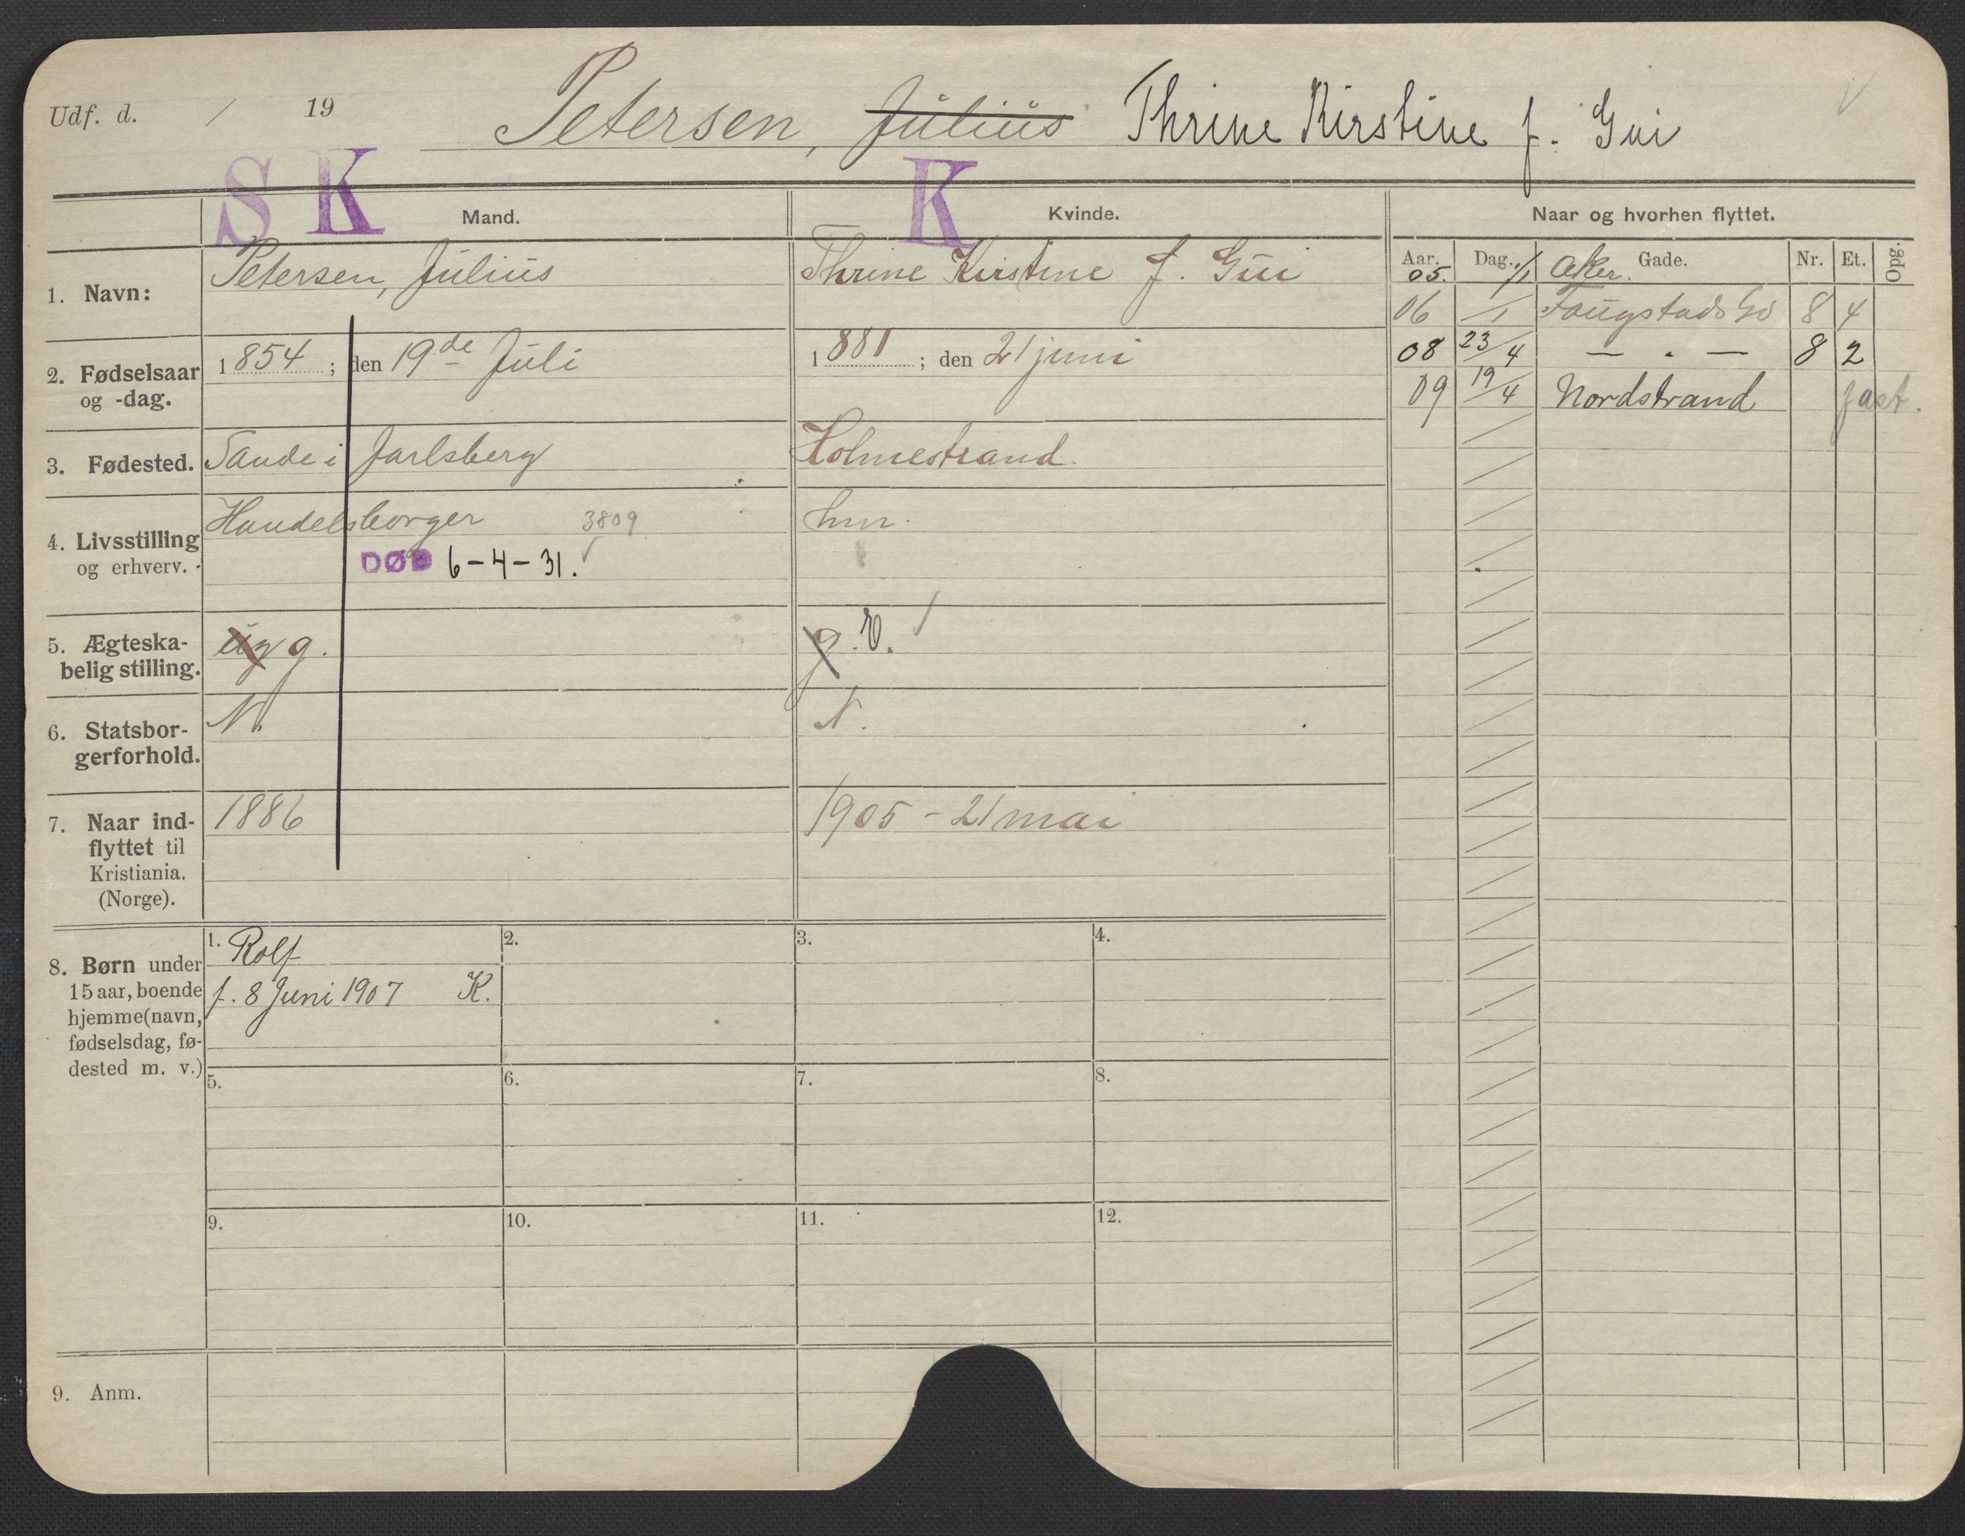 Udf. d. / 19
Petersen, Julius Thrine Kirstine f. Gui
S K K
Mand. Kvinde. Naar og hvorhen flyttet.
Aar. Dag. Gade. Nr. Et. Opg.
05. 1/1 Aker.
06 /1 Fougstads Gd 8 4
08 23/4 — " — 8 2
09 19/4 Nordstrand fast.
1. Navn: Petersen, Julius Thrine Kirstine f. Gui
2. Fødselsaar og -dag. 1854; den 19de Juli 1881; den 21 juni
3. Fødested. Sande i Jarlsberg Holmestrand.
4. Livsstilling og erhverv. Handelsborger 3809 hm.
DØD 6-4-31.
5. Ægteskabelig stilling. ug g. g. v.
6. Statsborgerforhold. N. N.
7. Naar indflyttet til Kristiania. (Norge). 1886 1905 - 21 mai
8. Børn under 15 aar, boende hjemme (navn, fødselsdag, fødested m. v.)
1. Rolf 2. 3. 4.
f. 8 Juni 1907 K.
5. 6. 7. 8.
9. 10. 11. 12.
9. Anm.